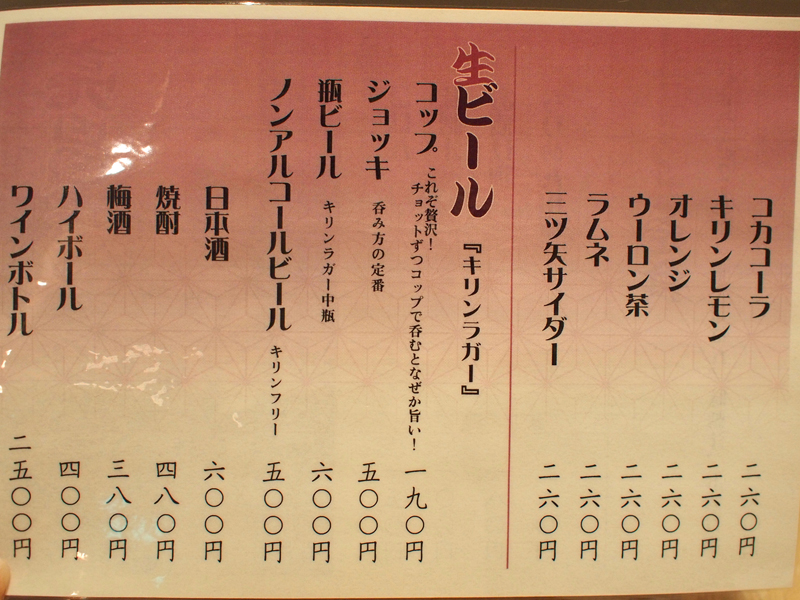 コカコーラ 二六〇円
キリンレモン 二六〇円
オレンジ 二六〇円
ウーロン茶 二六〇円
ラムネ 二六〇円
三ツ矢サイダー 二六〇円
生ビール 『キリンラガー』
コップ これぞ贅沢！
チョットずつコップで呑むとなぜか旨い！ 一九〇円
ジョッキ 呑み方の定番 五〇〇円
瓶ビール キリンラガー中瓶 六〇〇円
ノンアルコールビール キリンフリー 五〇〇円
日本酒 六〇〇円
焼酎 四八〇円
梅酒 三八〇円
ハイボール 四〇〇円
ワインボトル 二五〇〇円